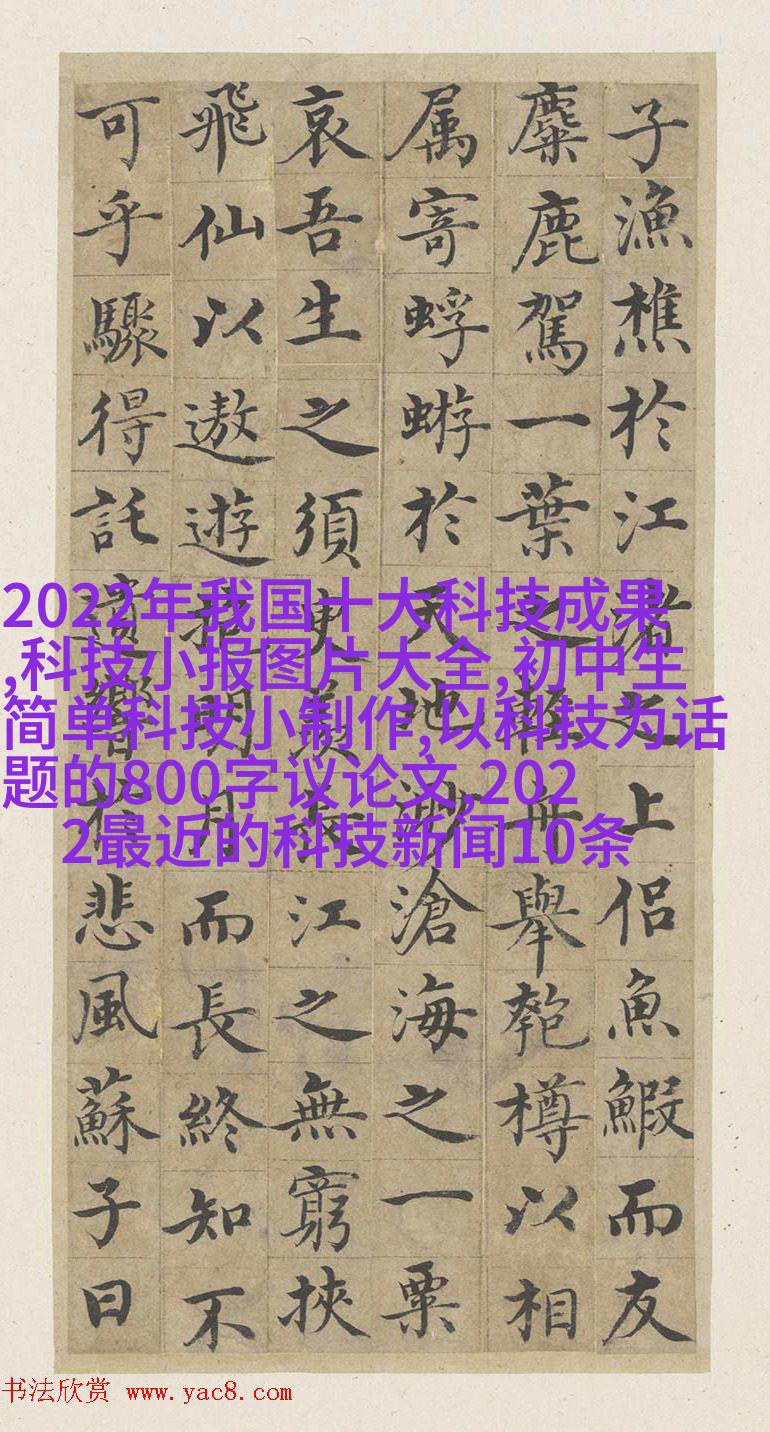 子漁樵於江渚之上侶魚鰕而友
麋鹿駕一葉之輕舟舉匏樽以相
属寄蜉蝣於天地渺滄海之一粟
哀吾生之須臾羨長江之無窮挾
飛仙以遨遊抱明月而長終知不
可乎驟得託遺響於悲風蘇子曰
2022年我国十大科技成果
,科技小报图片大全,初中生
简单科技小制作,以科技为话
题的800字议论文,202
2最近的科技新闻10条
书法欣赏 www.yac8.com